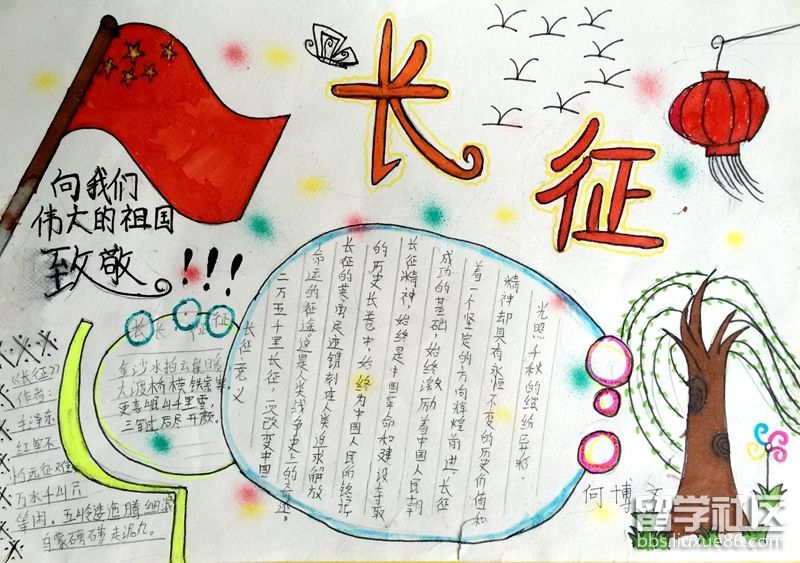 长征
向我们
伟大的祖国
致敬!!!
长长征征
金沙水拍云崖暖
大渡桥横铁索寒
更喜岷山千里雪
三军过后尽开颜。
《长征》
作者:
毛泽东
红军不
怕远征难
万水千山只
等闲。五岭逶迤腾细浪
乌蒙磅礴走泥丸。
长征意义
二万五千里长征,一次改变中国
命运的征途,这是人类战争史上的奇迹。
长征的英勇足迹镌刻在人类追求解放
的历史长卷中,始终为中国人民所铭记
长征精神,始终是中国革命和建设取
成功的基础,始终激励着中国人民朝
着一个坚定的方向辉煌前进!长征
精神却具有永恒不变的历史价值和
光照千秋的缤纷异彩。
何博
留学社区
bbs.liuxue86.com